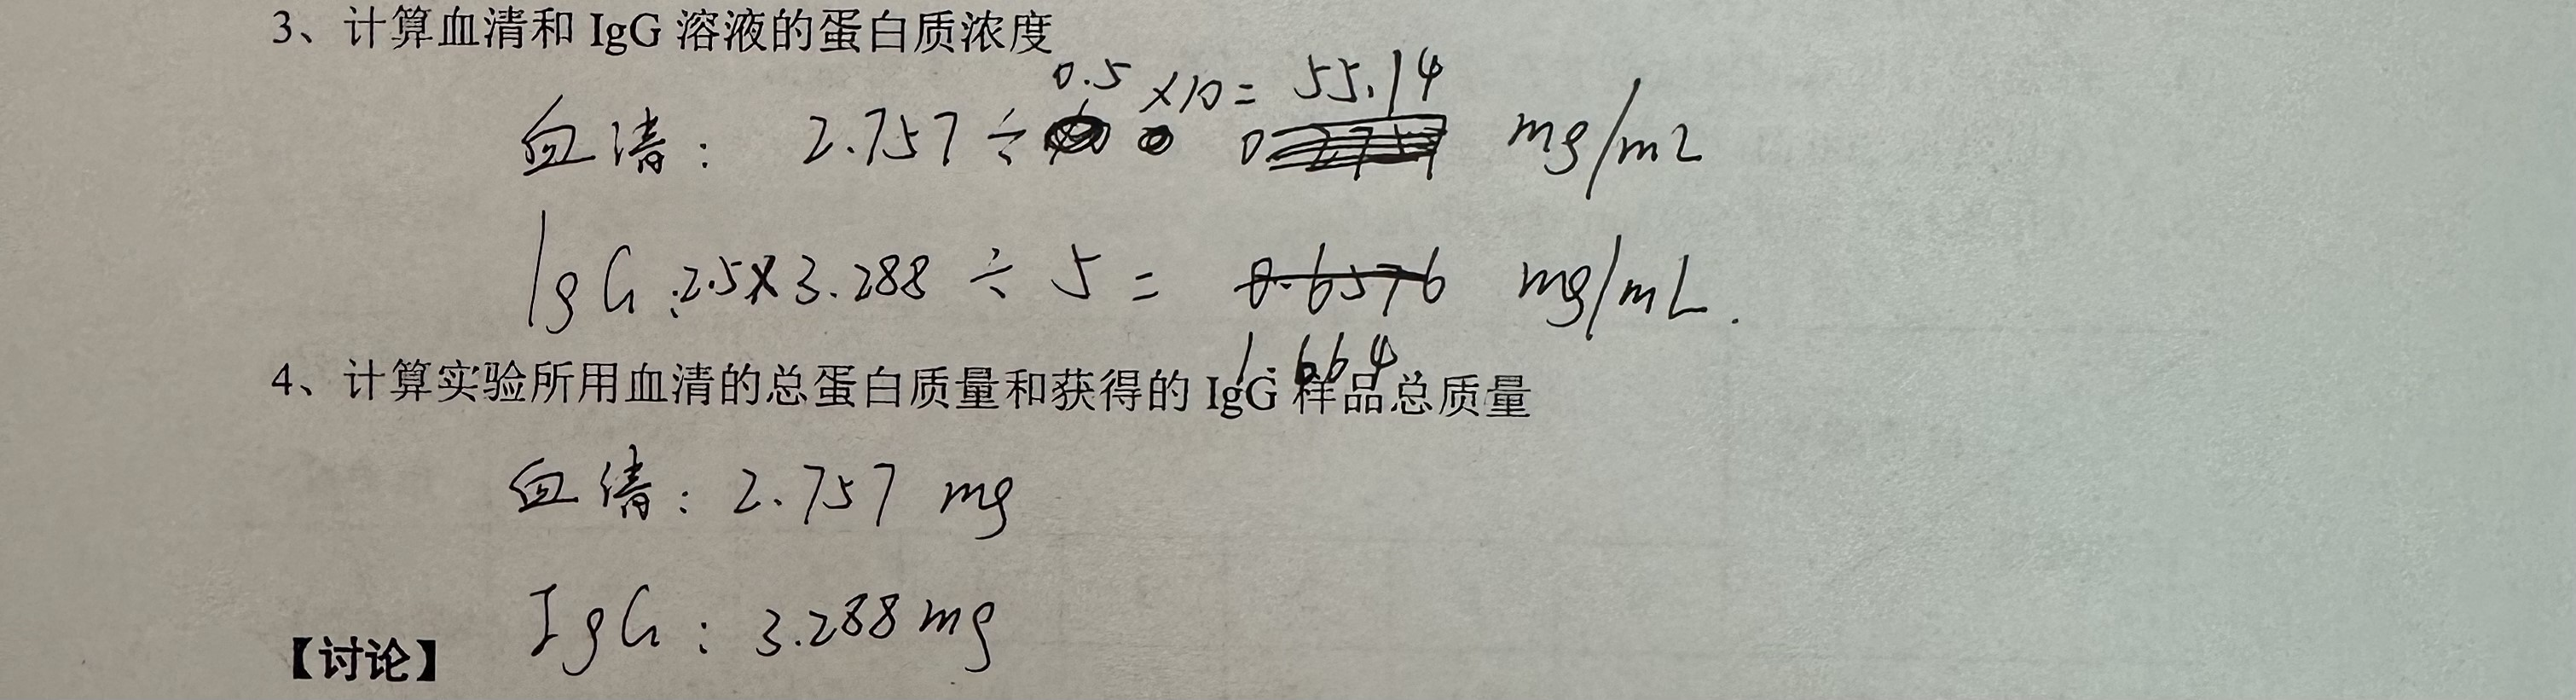 3、计算血清和 IgG 溶液的蛋白质浓度
血清: 2.757 ÷ 0.5 ×10 = 55.14 mg/mL
IgG: 2.5×3.288 ÷ 5 = 0.6576 mg/mL.
1.664
4、计算实验所用血清的总蛋白质量和获得的 IgG 样品总质量
血清: 2.757 mg
IgG: 3.288 mg
【讨论】